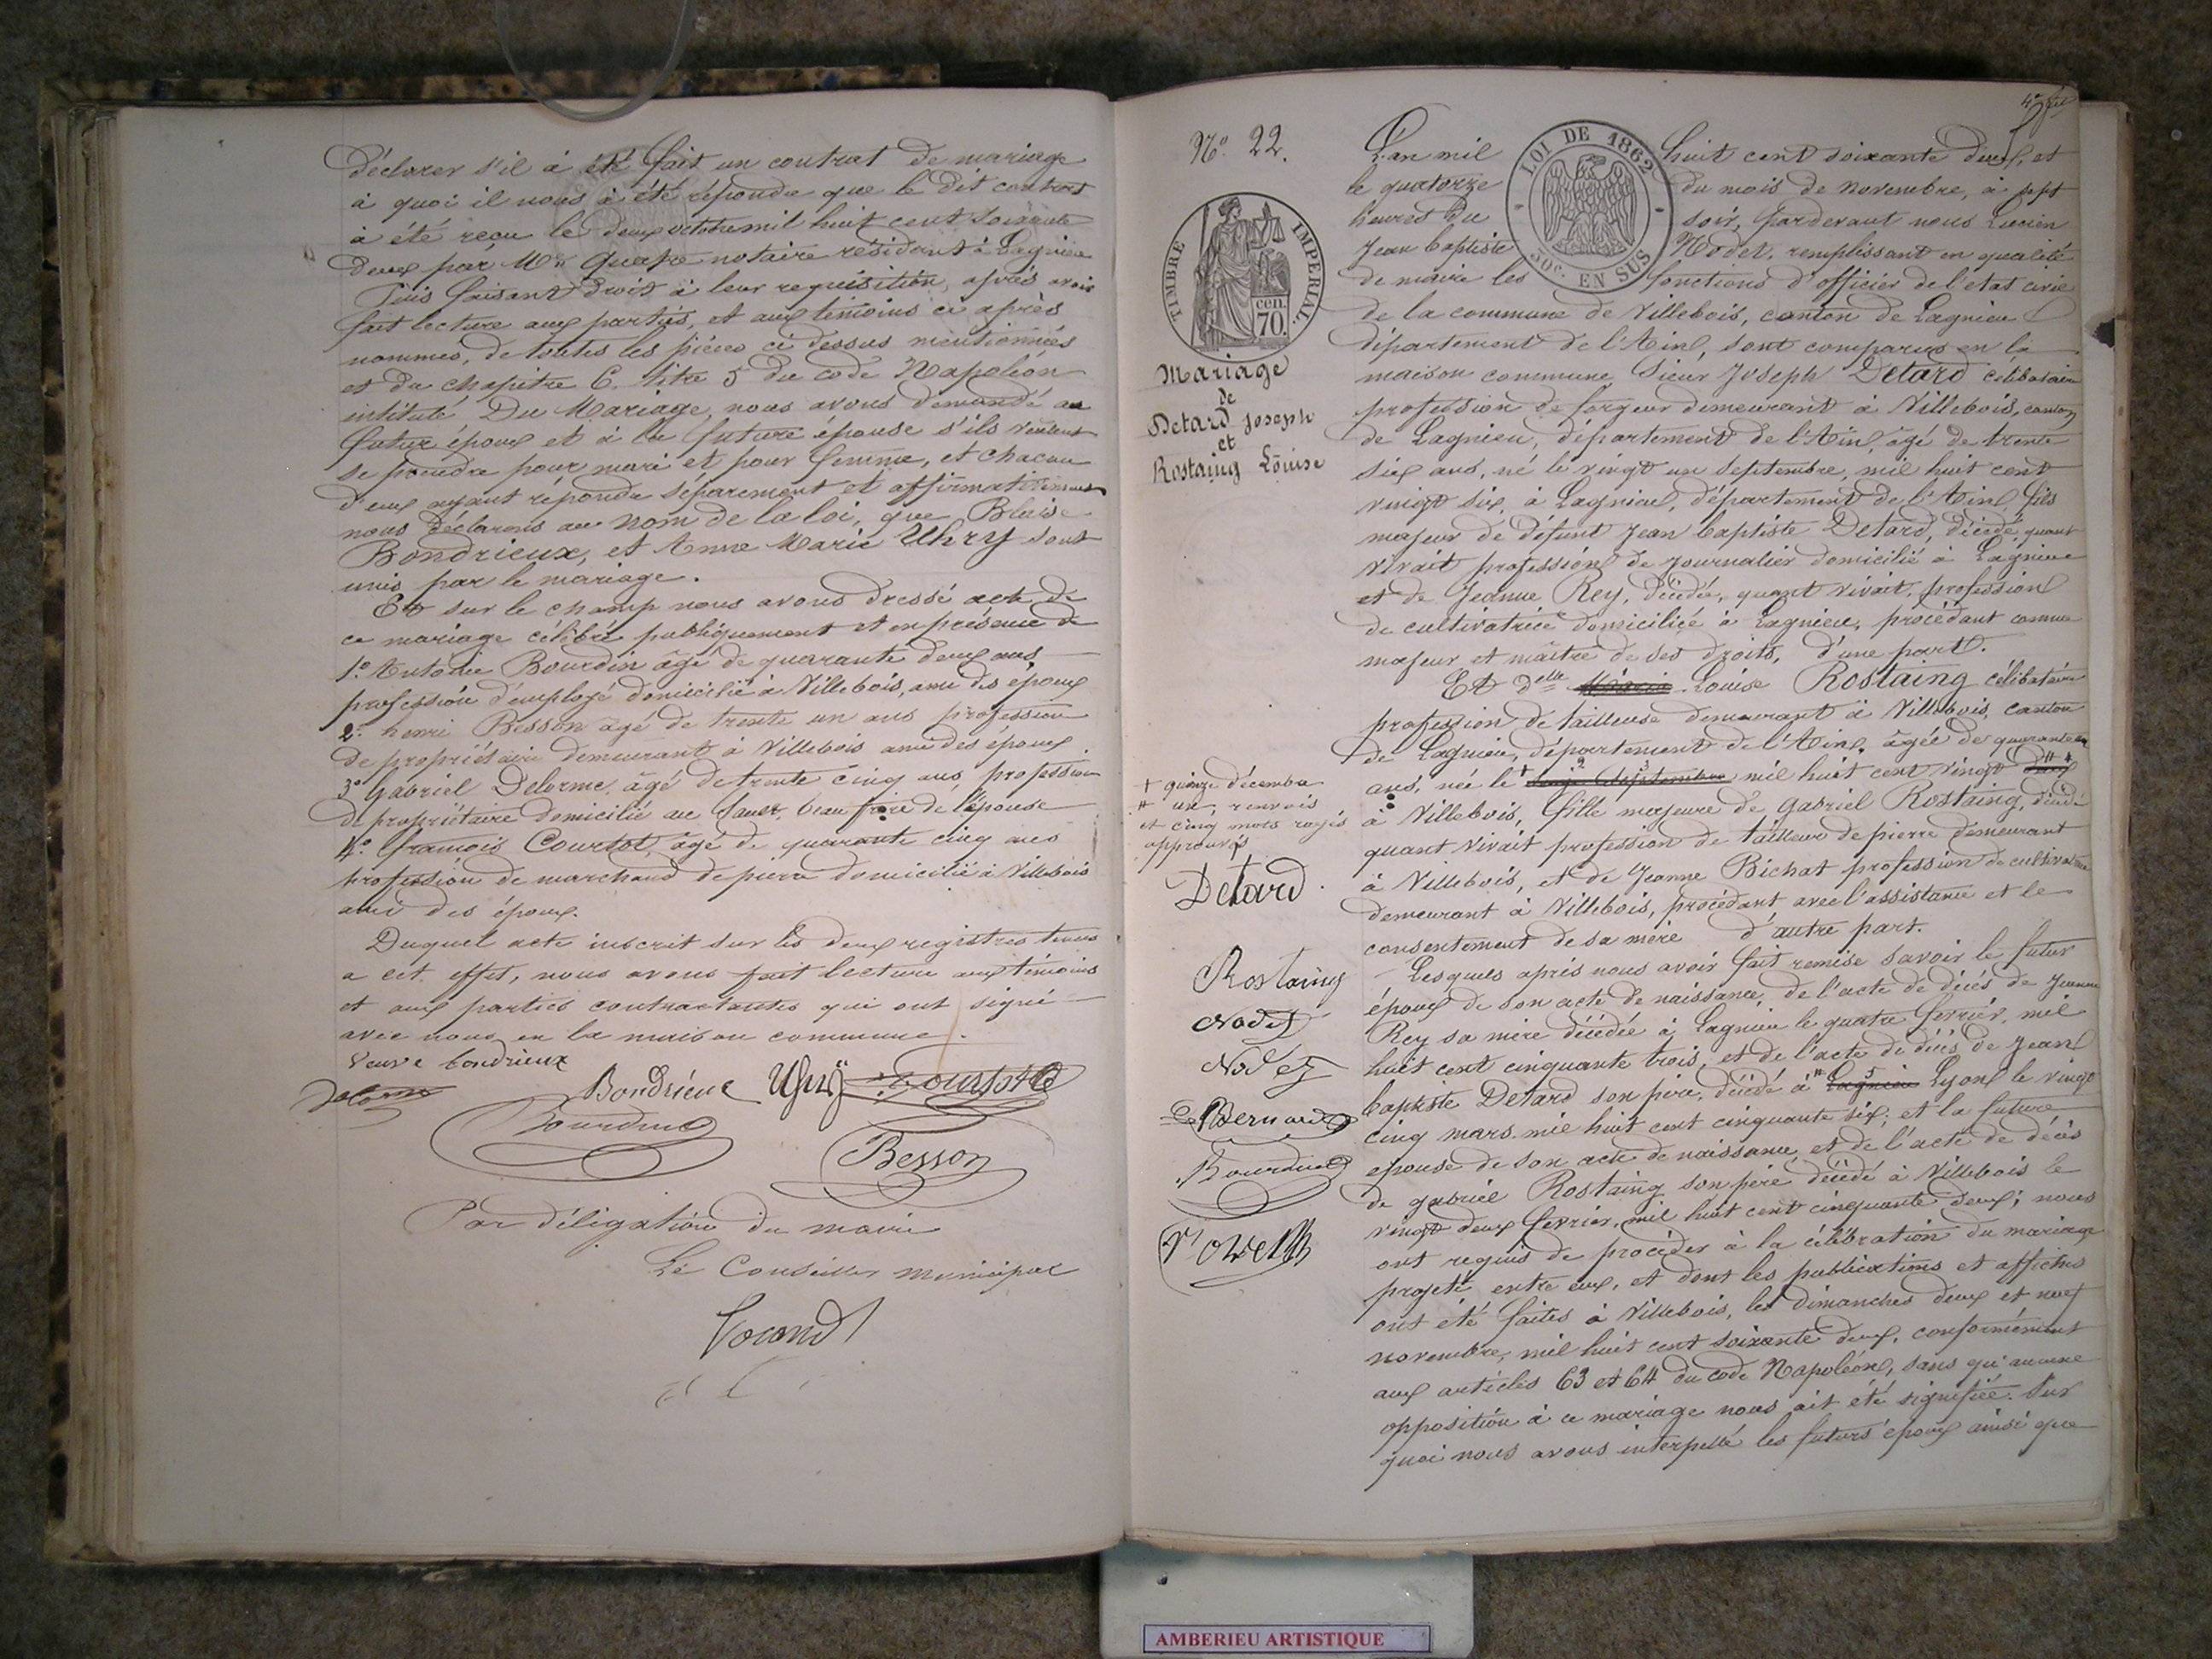 déclarer s'il à été fait un contrat de mariage
à quoi il nous à été répondu que le dit contrat
à été reçu le deux octobre mil huit cent soixante
deux par Me notaire résidant à Lagnieu
Puis faisant droit à leur requisition, après avoir
fait lecture aux parties, et aux témoins ci après
nommés, de toutes les pièces ci dessus mentionnées
et du chapitre 6. titre 5 du code Napoléon
intitulé Du Mariage, nous avons demandé au
futur époux et à la future épouse s'ils veulent
se prendre pour mari et pour femme, et chacun
d'eux ayant répondu séparement et affirmativement
nous déclarons au nom de la loi, que Blaise
Bondrieux, et Anne Marie Uhry sont
unis par le mariage.
Et sur le champ nous avons dressé acte de
ce mariage célébré publiquement et en présence de
1o. Antoine Bourdin âgé de quarante deux ans,
profession d'employé domicilié à Villebois, ami des époux
2o. henri Besson âgé de trente un ans profession
de propriétaire demeurant à Villebois ami des époux
3o Gabriel Delorme, âgé de trente cinq ans, profession
de propriétaire domicilié au Sault, beau frère de l'épouse
4o. françois Courtot, âgé de quarante cinq ans
profession de marchand de pierre domicilié à Villebois
ami des époux.
Duquel acte inscrit sur les deux registres tenus
a cet effet, nous avons fait lecture aux témoins
et aux parties contractantes qui ont signé
avec nous en la maison commune.
Veuve bondrieux
Delorme Bondrieux Uhry Courtot
Bourdin
Besson
Par déligation du maire
Le Conseiller municipal
Nº. 22.
TIMBRE IMPERIAL
cen.
70.
Mariage
de
Detard Joseph
et
Rostaing Louise
+ quinze décembre
# un, renvois
et cinq mots rayés
approuvés
Detard
Rostaing
Nodet
Nodet
Bernard
Bourdin
LOI DE 1862
50c. EN SUS
L'an mil huit cent soixante deux, et
le quatorze du mois de novembre, à sept
heures du soir, pardevant nous Lucien
Jean baptiste Nodet, remplissant en qualité
de maire les fonctions d'officier de l'etat civil
de la commune de Villebois, canton de Lagnieu
département de l'Ain, sont comparus en la
maison commune, Sieur Joseph Detard célibataire
profession de forgeur demeurant à Villebois, canton
de Lagnieu, département de l'Ain, âgé de trente
six ans, né le vingt un septembre, mil huit cent
vingt six, à Lagnieu, département de l'Ain, fils
majeur de défunt Jean baptiste Detard, décédé quant
vivait profession de journalier domicilié à Lagnieu
et de Jeanne Rey, décédée, quant vivait, profession
de cultivatrice domiciliée à Lagnieu, procédant comme
majeur et maître de ses droits, d'une part.
Et delle Louise Rostaing célibataire
profession de tailleuse demeurant à Villebois, canton
de Lagnieu, département de l'Ain, âgée de quarante un
ans, née le + septembre mil huit cent vingt deux #
à Villebois, fille majeure de gabriel Rostaing, décédé
quant vivait profession de tailleur de pierre demeurant
à Villebois, et de Jeanne Bichat profession de cultivatrice
demeurant à Villebois, procédant avec l'assistance et le
consentement de sa mère d'autre part.
Lesquels après nous avoir fait remise savoir le futur
époux de son acte de naissance, de l'acte de décès de Jeanne
Rey sa mère décédée à Lagnieu le quatre fevrier, mil
huit cent cinquante trois, et de l'acte de décès de Jean
baptiste Detard son père, décédé à Lagnieu Lyon le vingt
cinq mars mil huit cent cinquante six; et la future
epouse de son acte de naissance, et de l'acte de décès
de gabriel Rostaing son père décédé à Villebois le
vingt deux fevrier, mil huit cent cinquante deux; nous
ont requis de procéder à la célébration du mariage
projeté entre eux, et dont les publications et affiches
ont été faites à Villebois, les dimanches deux et neuf
novembre, mil huit cent soixante deux, conformément
aux articles 63 et 64 du code Napoléon, sans qu'aucune
opposition à ce mariage nous ait été signifiée. Sur
quoi nous avons interpellé les futurs époux ainsi que
AMBERIEU ARTISTIQUE